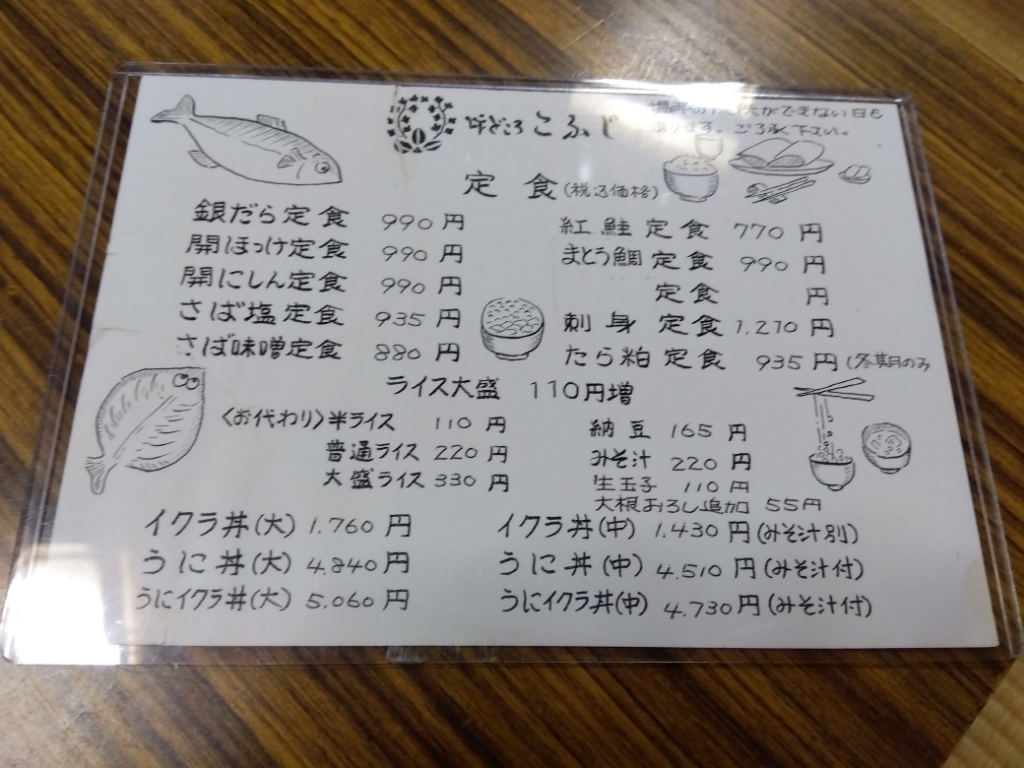 味どころ こふじ
ができない日も
あります。ご了承下さい。
定食(税込価格)
銀だら定食 990円
開ほっけ定食 990円
開にしん定食 990円
さば塩定食 935円
さば味噌定食 880円
紅鮭定食 770円
まとう鯛定食 990円
定食 円
刺身定食 1.270円
たら粕定食 935円(冬期のみ
ライス大盛 110円増
〈お代わり〉半ライス 110円
普通ライス 220円
大盛ライス 330円
納豆 165円
みそ汁 220円
生玉子 110円
大根おろし追加 55円
イクラ丼(大) 1.760円
うに丼(大) 4.840円
うにイクラ丼(大) 5.060円
イクラ丼(中) 1.430円(みそ汁別)
うに丼(中) 4.510円(みそ汁付)
うにイクラ丼(中) 4.730円(みそ汁付)